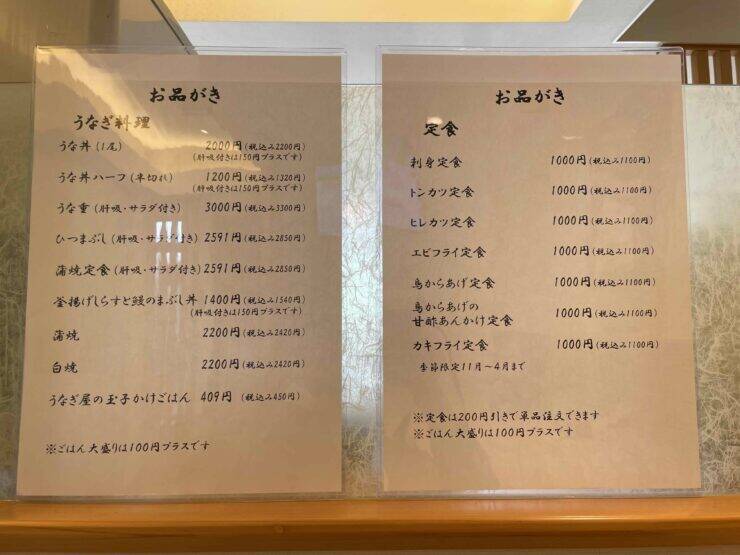 お品がき
うなぎ料理
うな丼(1尾) 2000円(税込み2200円)
(肝吸付きは150円プラスです)
うな丼ハーフ(半切れ) 1200円(税込み1320円)
(肝吸付きは150円プラスです)
うな重(肝吸・サラダ付き) 3000円(税込み3300円)
ひつまぶし(肝吸・サラダ付き) 2591円(税込み2850円)
蒲焼定食(肝吸・サラダ付き) 2591円(税込み2850円)
釜揚げしらすと鰻のまぶし丼 1400円(税込み1540円)
(肝吸付きは150円プラスです)
蒲焼 2200円(税込み2420円)
白焼 2200円(税込み2420円)
うなぎ屋の玉子かけごはん 409円(税込み450円)
※ごはん大盛りは100円プラスです
お品がき
定食
刺身定食 1000円(税込み1100円)
トンカツ定食 1000円(税込み1100円)
ヒレカツ定食 1000円(税込み1100円)
エビフライ定食 1000円(税込み1100円)
鳥からあげ定食 1000円(税込み1100円)
鳥からあげの
甘酢あんかけ定食 1000円(税込み1100円)
カキフライ定食 1000円(税込み1100円)
季節限定11月～4月まで
※定食は200円引きで単品注文できます
※ごはん大盛りは100円プラスです